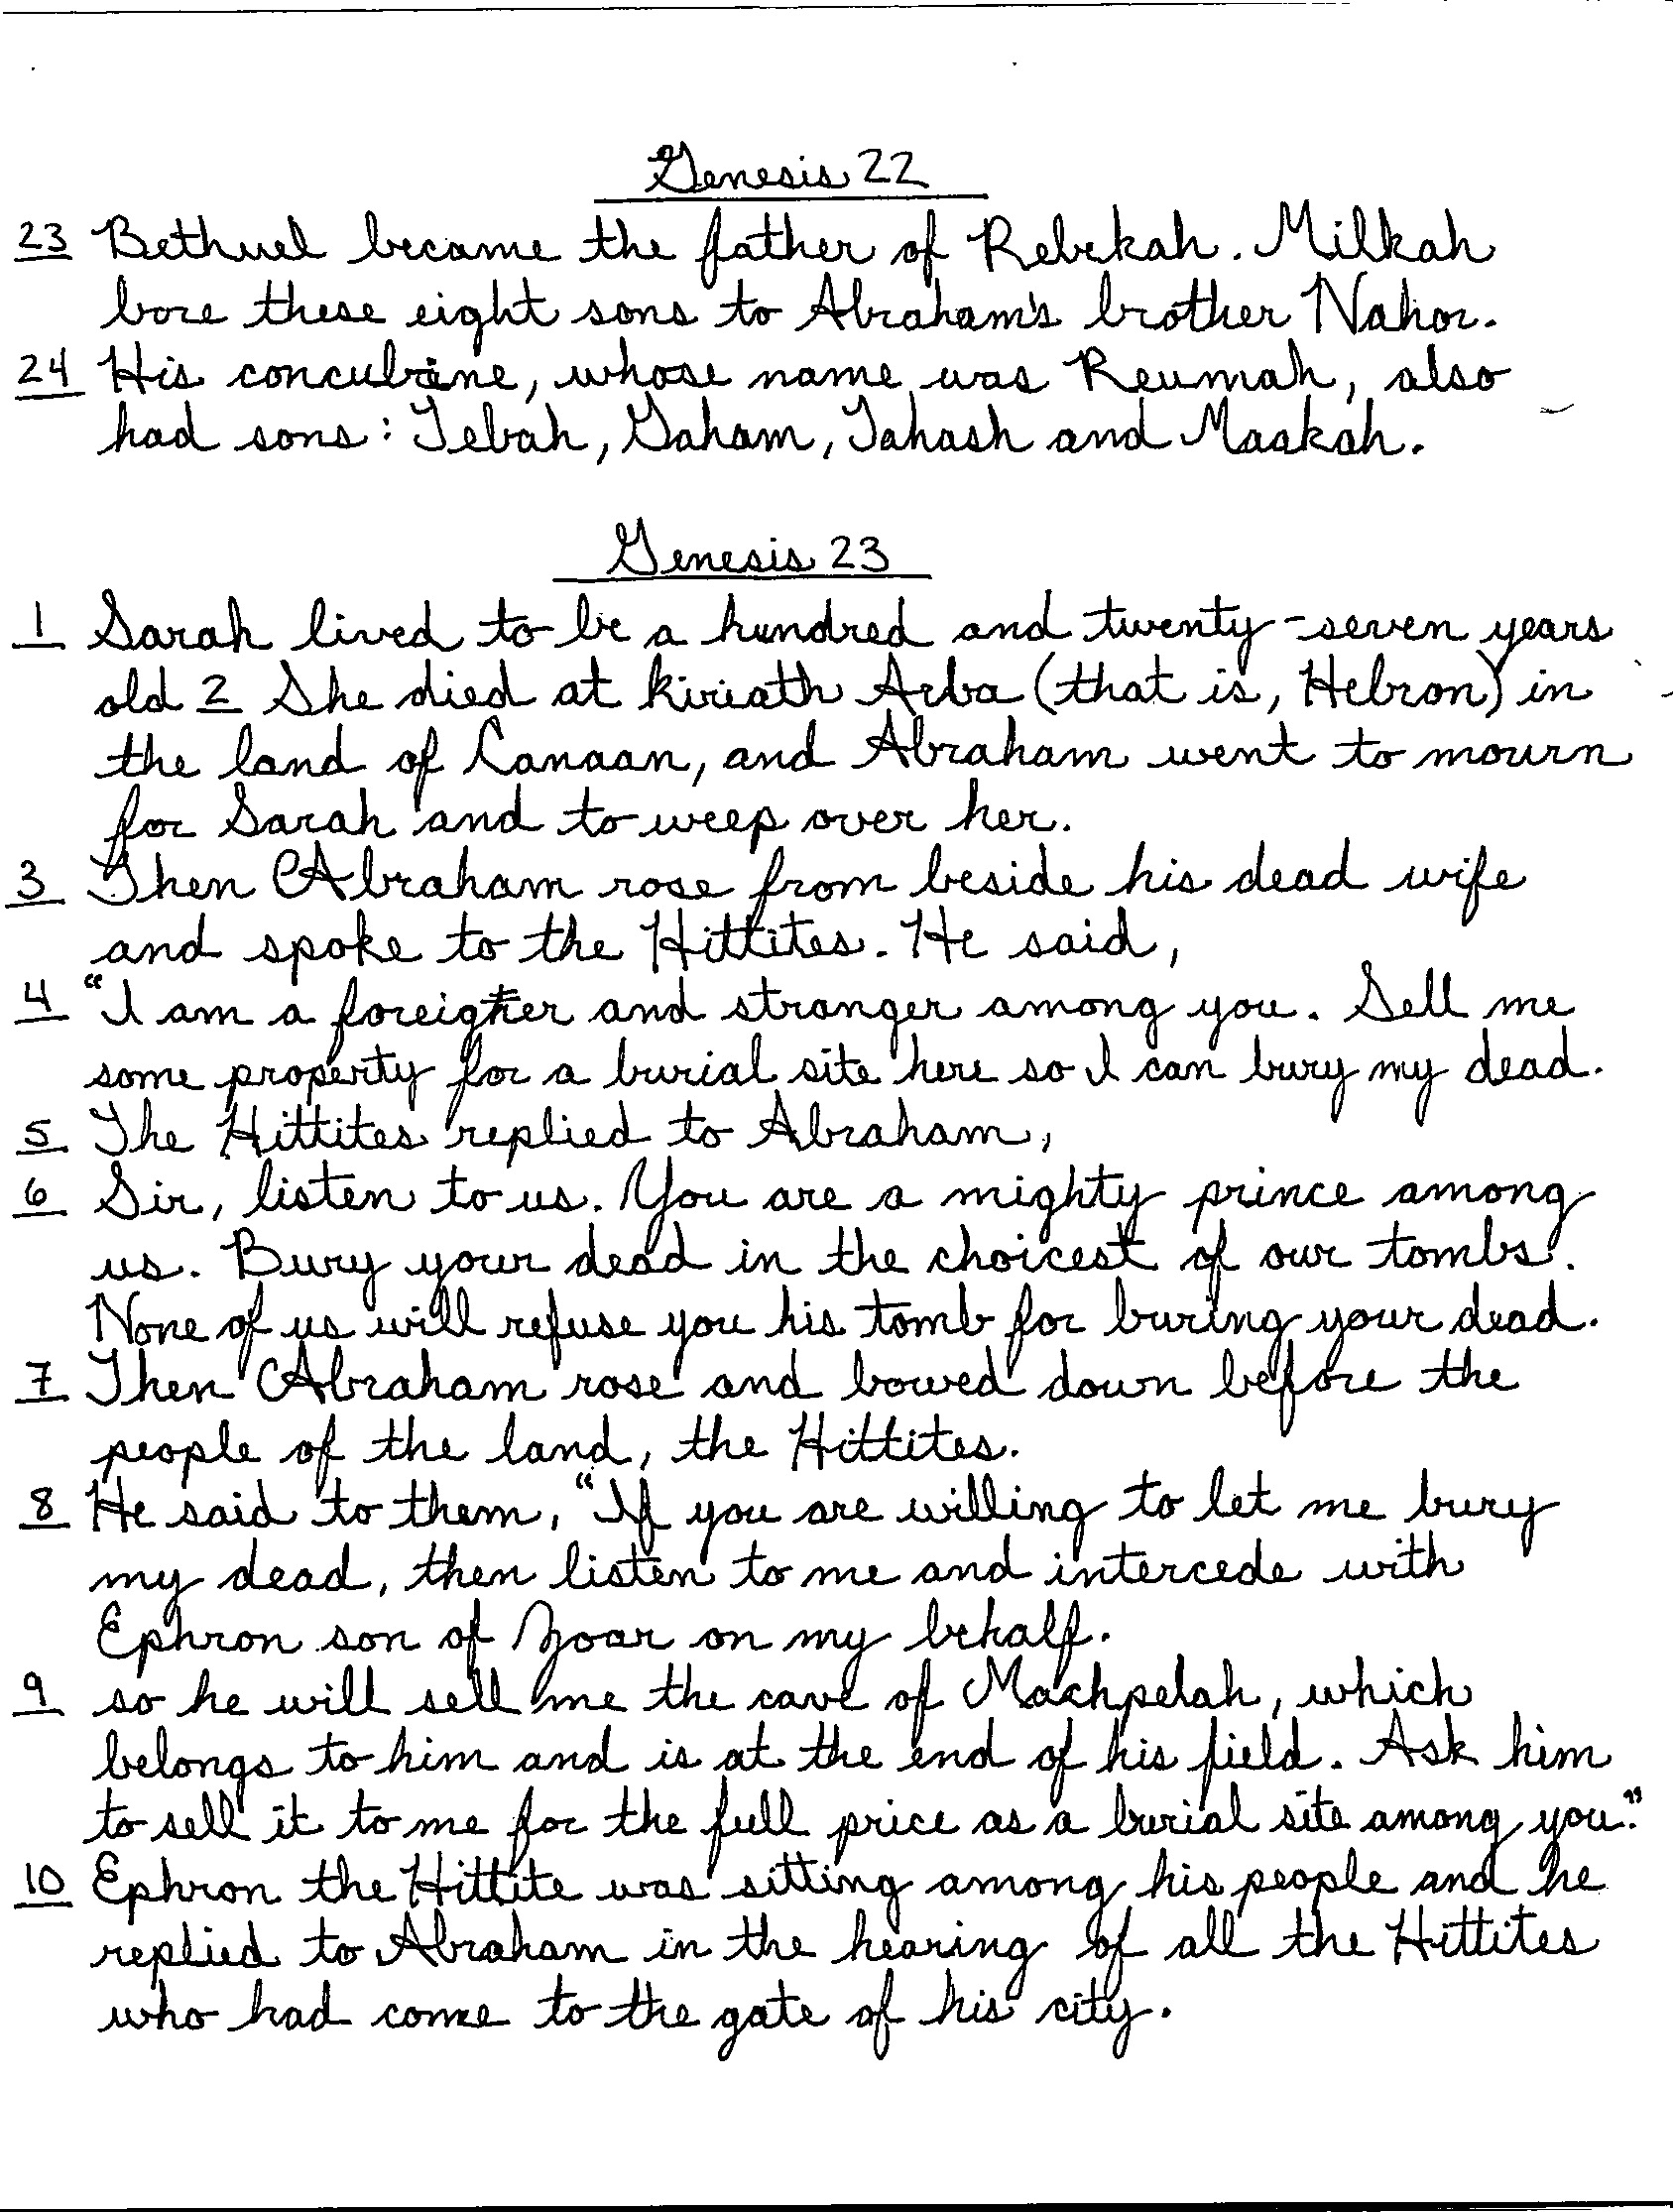 Genesis 22
23 Bethuel became the father of Rebekah. Milkah
bore these eight sons to Abraham's brother Nahor.
24 His concubine, whose name was Reumah, also
had sons: Tebah, Gaham, Tahash and Maakah.
Genesis 23
1 Sarah lived to be a hundred and twenty-seven years
old 2 She died at Kiriath Arba (that is, Hebron) in
the land of Canaan, and Abraham went to mourn
for Sarah and to weep over her.
3 Then Abraham rose from beside his dead wife
and spoke to the Hittites. He said,
4 "I am a foreigner and stranger among you. Sell me
some property for a burial site here so I can bury my dead.
5 The Hittites replied to Abraham,
6 Sir, listen to us. You are a mighty prince among
us. Bury your dead in the choicest of our tombs.
None of us will refuse you his tomb for buring your dead.
7 Then Abraham rose and bowed down before the
people of the land, the Hittites.
8 He said to them, "If you are willing to let me bury
my dead, then listen to me and intercede with
Ephron son of Zoar on my behalf.
9 so he will sell me the cave of Machpelah, which
belongs to him and is at the end of his field. Ask him
to sell it to me for the full price as a burial site among you."
10 Ephron the Hittite was sitting among his people and he
replied to Abraham in the hearing of all the Hittites
who had come to the gate of his city.